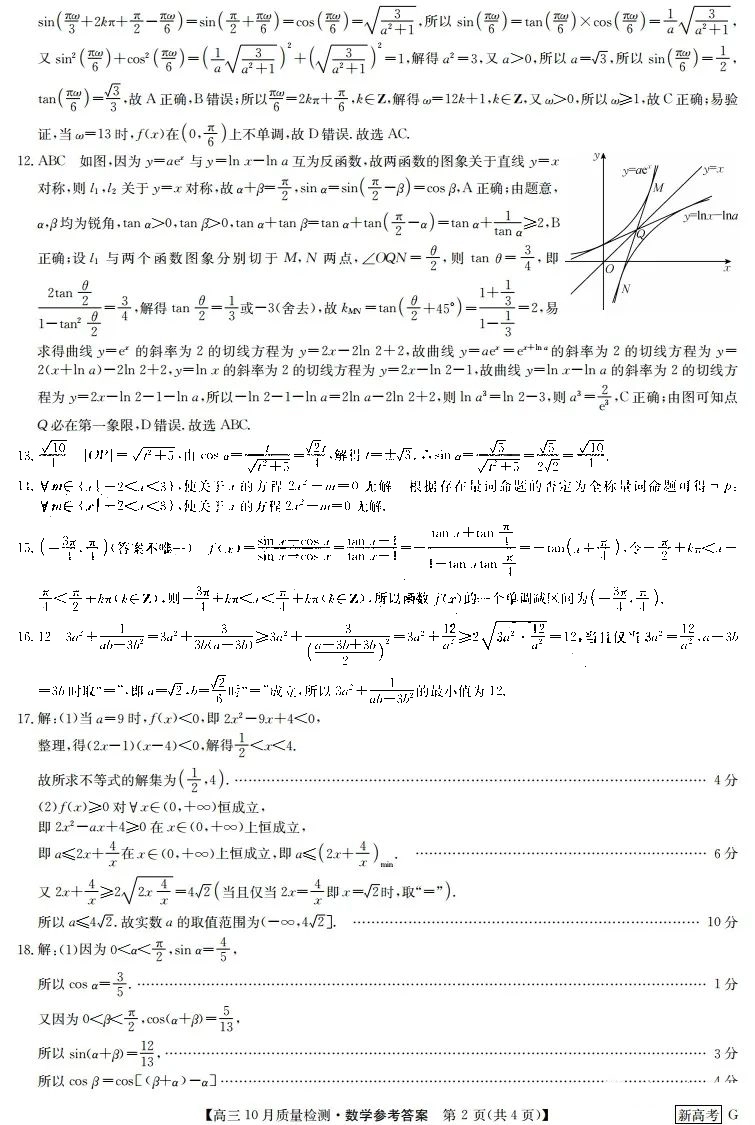 sin(πω/3+2kπ+π/2−πω/6)=sin(π/2+πω/6)=cos(πω/6)=√(3/(a²+1)),所以 sin(πω/6)=tan(πω/6)×cos(πω/6)=1/a√(3/(a²+1)),
又 sin²(πω/6)+cos²(πω/6)=(1/a√(3/(a²+1)))²+(√(3/(a²+1)))²=1,解得 a²=3,又 a>0,所以 a=√3,所以 sin(πω/6)=1/2,
tan(πω/6)=√3/3,故 A 正确,B 错误;所以πω/6=2kπ+π/6,k∈Z,解得 ω=12k+1,k∈Z,又 ω>0,所以 ω≥1,故 C 正确;易验
证,当 ω=13 时,f(x)在(0,π/6)上不单调,故 D 错误. 故选 AC.
12. ABC 如图,因为 y=aeˣ 与 y=ln x−ln a 互为反函数,故两函数的图象关于直线 y=x
对称,则 l₁,l₂ 关于 y=x 对称,故 α+β=π/2,sin α=sin(π/2−β)=cos β,A 正确;由题意,
α,β 均为锐角,tan α>0,tan β>0,tan α+tan β=tan α+tan(π/2−α)=tan α+1/tan α≥2,B
正确;设 l₁ 与两个函数图象分别切于 M,N 两点,∠OQN=θ/2,则 tan θ=3/4,即
2tan θ/2/(1−tan² θ/2)=3/4,解得 tan θ/2=1/3或−3(舍去),故 k_MN=tan(θ/2+45°)=(1+1/3)/(1−1/3)=2,易
y
y=aeˣ
y=x
M
y=lnx−lna
Q
O
x
N
求得曲线 y=eˣ 的斜率为 2 的切线方程为 y=2x−2ln 2+2,故曲线 y=aeˣ=eˣ⁺ˡⁿ ᵃ 的斜率为 2 的切线方程为 y=
2(x+ln a)−2ln 2+2,y=ln x 的斜率为 2 的切线方程为 y=2x−ln 2−1,故曲线 y=ln x−ln a 的斜率为 2 的切线方
程为 y=2x−ln 2−1−ln a,所以−ln 2−1−ln a=2ln a−2ln 2+2,则 ln a³=ln 2−3,则 a³=2/e³,C 正确;由图可知点
Q 必在第一象限,D 错误. 故选 ABC.
13. √10/4 |OP|=√(t²+5),由 cos α=t/√(t²+5)=√2t/4,解得 t=±√3. ∴sin α=√5/√(t²+5)=√5/2√2=√10/4.
14. ∀m∈{x|−2<x<3},使关于 x 的方程 2x²−m=0 无解 根据存在量词命题的否定为全称量词命题可得¬p:
∀m∈{x|−2<x<3},使关于 x 的方程 2x²−m=0 无解.
15. (−3π/4,π/4)(答案不唯一) f(x)=(sin x+cos x)/(sin x−cos x)=(tan x+1)/(tan x−1)=−(tan x+tan π/4)/(1−tan x tan π/4)=−tan(x+π/4),令−π/2+kπ<x+
π/4<π/2+kπ(k∈Z),则−3π/4+kπ<x<π/4+kπ(k∈Z),所以函数 f(x)的一个单调减区间为(−3π/4,π/4).
16. 12 3a²+1/(ab−3b²)=3a²+3/(3b(a−3b))≥3a²+3/((a−3b+3b)/2)²=3a²+12/a²≥2√(3a²·12/a²)=12,当且仅当 3a²=12/a²,a−3b
=3b 时取“=”,即 a=√2,b=√2/6时“=”成立,所以 3a²+1/(ab−3b²)的最小值为 12.
17. 解:(1)当 a=9 时,f(x)<0,即 2x²−9x+4<0,
整理,得(2x−1)(x−4)<0,解得1/2<x<4.
故所求不等式的解集为(1/2,4). …… 4 分
(2)f(x)≥0 对∀x∈(0,+∞)恒成立,
即 2x²−ax+4≥0 在 x∈(0,+∞)上恒成立,
即 a≤2x+4/x在 x∈(0,+∞)上恒成立,即 a≤(2x+4/x)min. …… 6 分
又 2x+4/x≥2√(2x·4/x)=4√2(当且仅当 2x=4/x即 x=√2时,取“=”).
所以 a≤4√2. 故实数 a 的取值范围为(−∞,4√2]. …… 10 分
18. 解:(1)因为 0<α<π/2,sin α=4/5,
所以 cos α=3/5. …… 1 分
又因为 0<β<π/2,cos(α+β)=5/13,
所以 sin(α+β)=12/13, …… 3 分
所以 cos β=cos[(β+α)−α] …… 4 分
【高三 10 月质量检测·数学参考答案 第 2 页(共 4 页)】 新高考 G